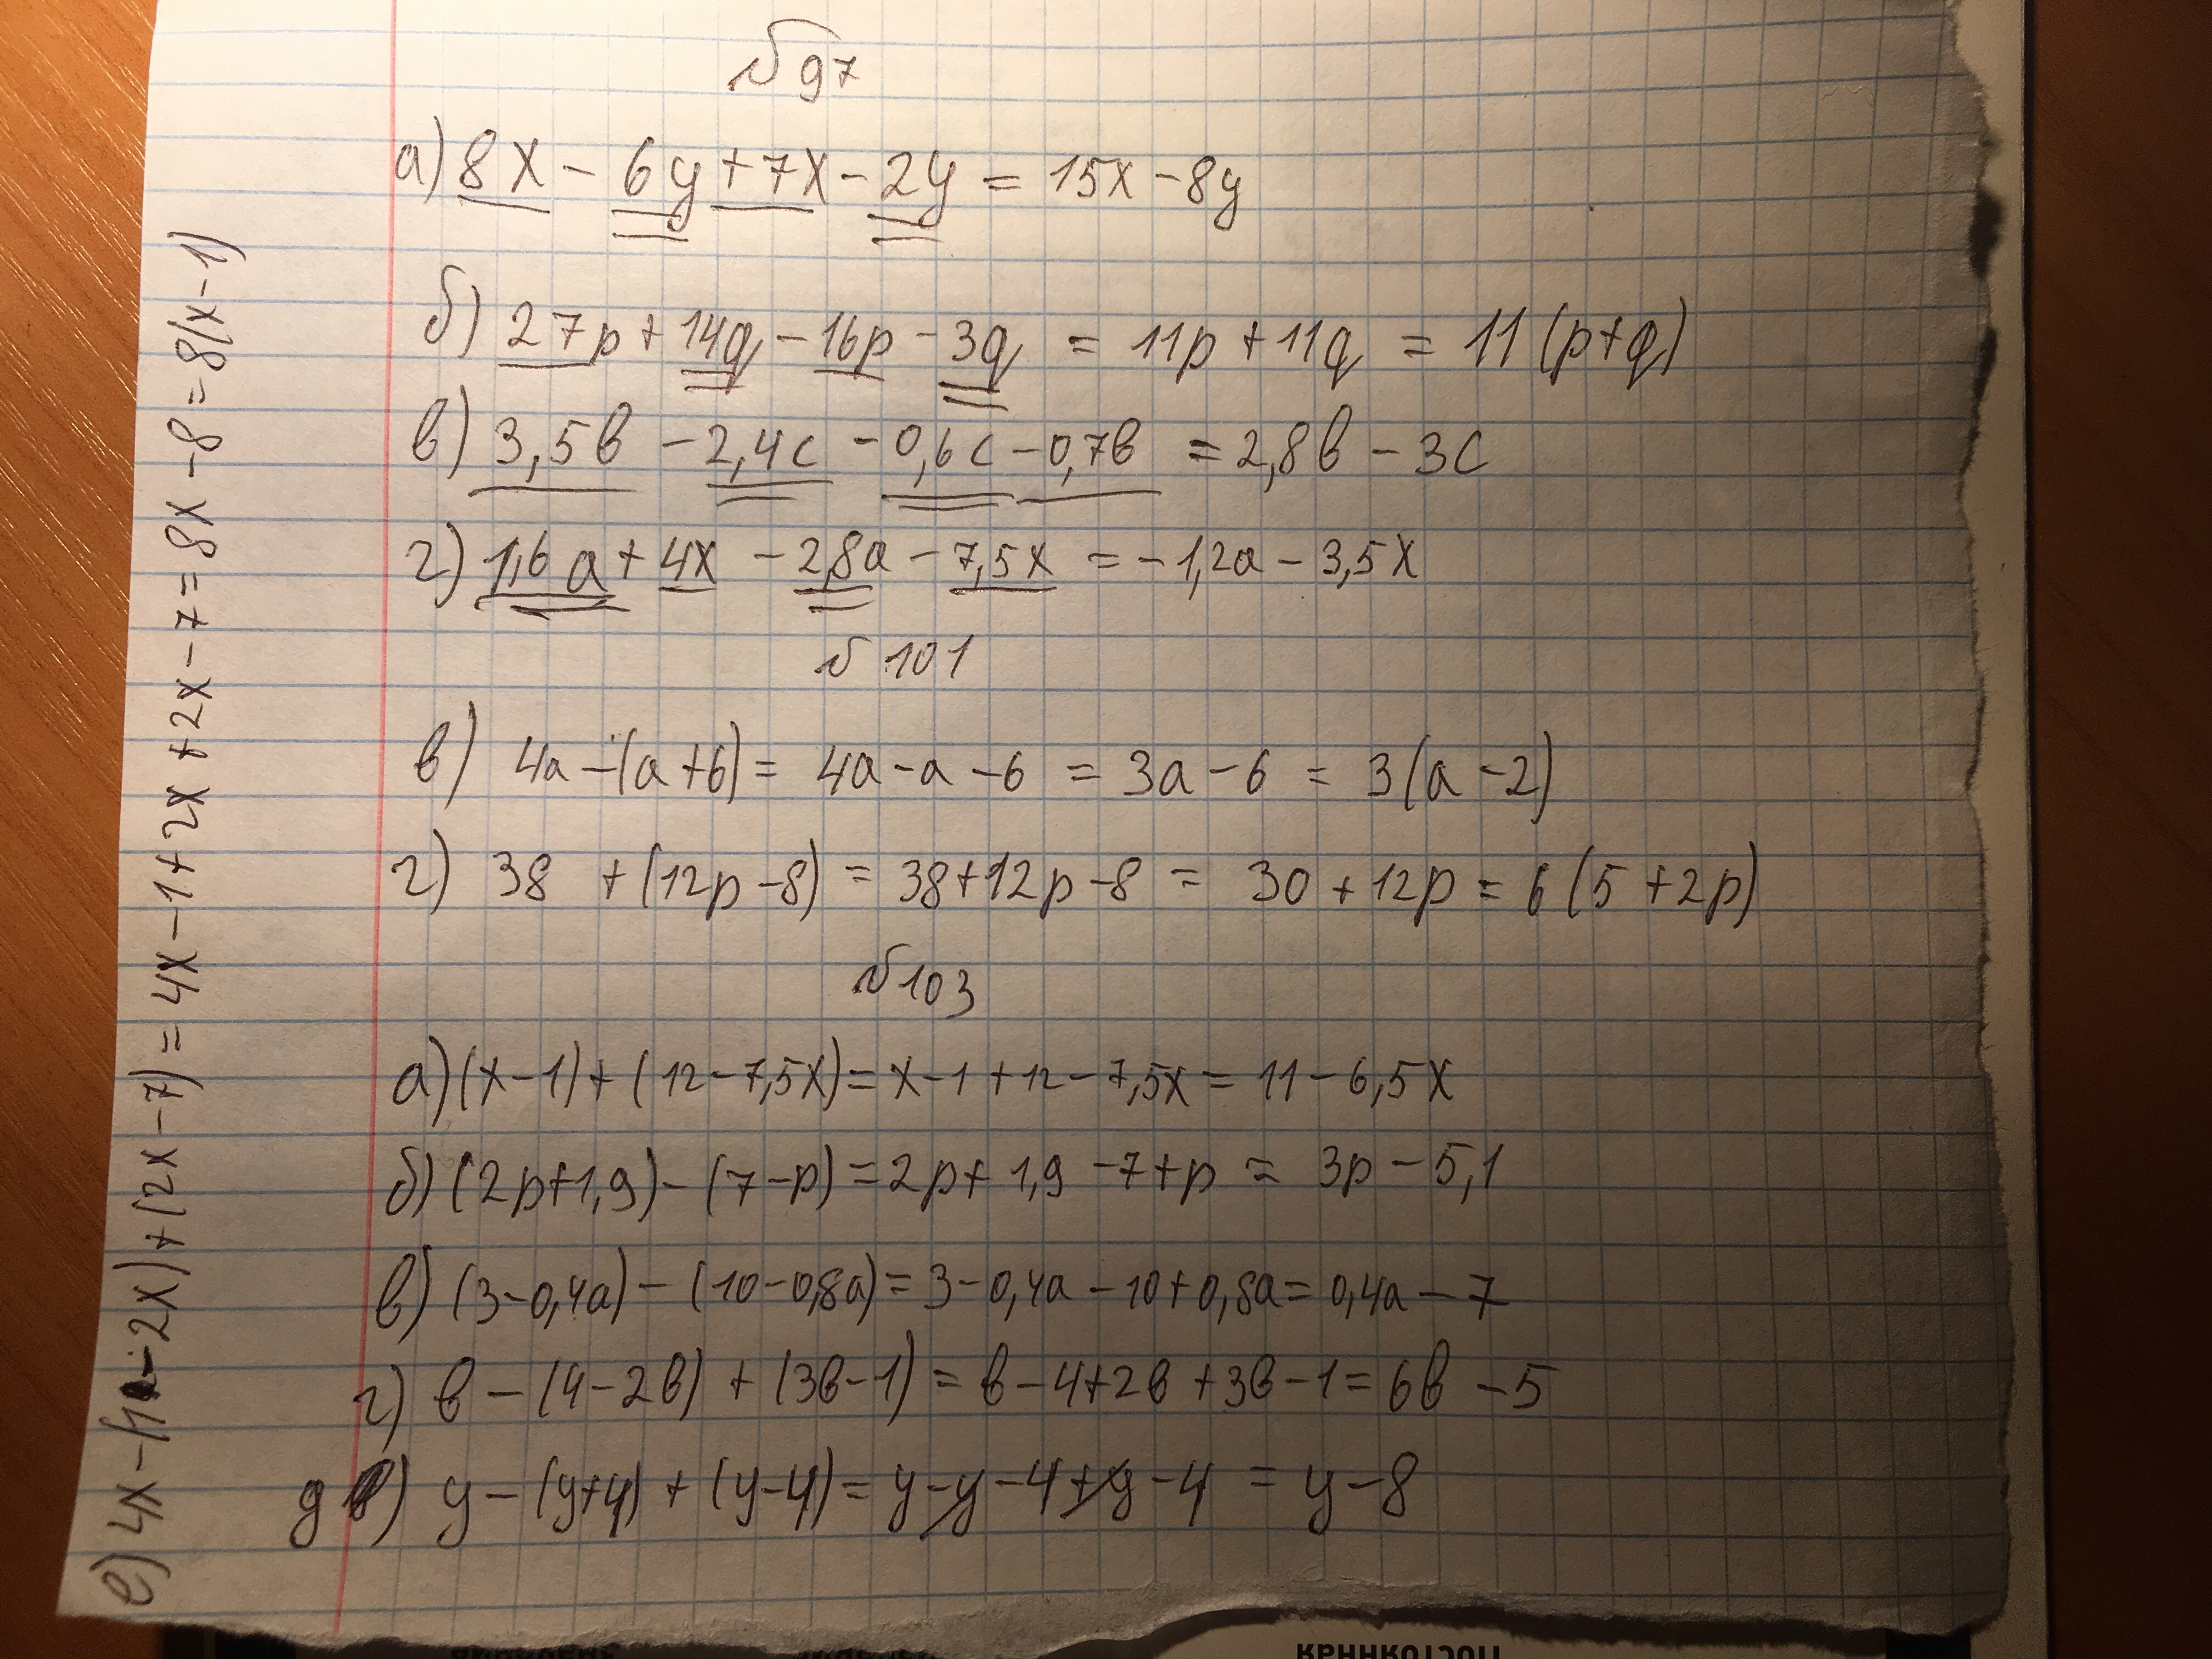 № 97
а) 8x - 6y + 7x - 2y = 15x - 8y
б) 27p + 14q - 16p - 3q = 11p + 11q = 11 (p+q)
в) 3,5b - 2,4c - 0,6c - 0,7b = 2,8b - 3c
г) 1,6a + 4x - 2,8a - 7,5x = -1,2a - 3,5x
№ 101
в) 4a - (a + 6) = 4a - a - 6 = 3a - 6 = 3 (a - 2)
г) 38 + (12p - 8) = 38 + 12p - 8 = 30 + 12p = 6 (5 + 2p)
№ 103
а) (x - 1) + (12 - 7,5x) = x - 1 + 12 - 7,5x = 11 - 6,5x
б) (2p + 1,9) - (7 - p) = 2p + 1,9 - 7 + p = 3p - 5,1
в) (3 - 0,4a) - (10 - 0,8a) = 3 - 0,4a - 10 + 0,8a = 0,4a - 7
г) b - (4 - 2b) + (3b - 1) = b - 4 + 2b + 3b - 1 = 6b - 5
д) y - (y + 4) + (y - 4) = y - y - 4 + y - 4 = y - 8
е) 4x - (1 - 2x) + (2x - 7) = 4x - 1 + 2x + 2x - 7 = 8x - 8 = 8(x - 1)